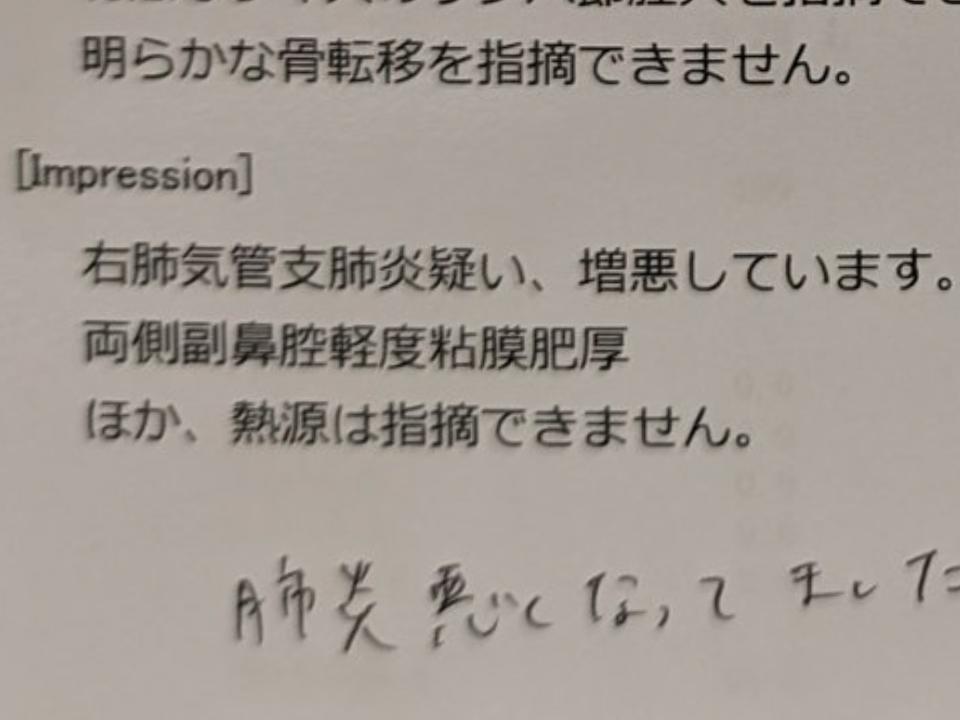 を指摘でき
明らかな骨転移を指摘できません。
[Impression]
右肺気管支肺炎疑い、増悪しています。
両側副鼻腔軽度粘膜肥厚
ほか、熱源は指摘できません。
肺炎 悪くなってました